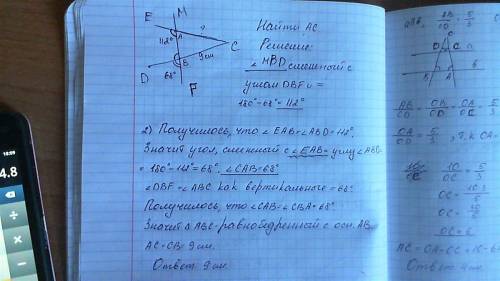 E
M
?
A
112°
C
D
B
9 см
68°
F
Найти AC
Решение:
∠MBD смежный с
углом DBF и =
180°-68°=112°
2) Получилось, что ∠EAB=∠ABD=112°.
Значит угол, смежный с ∠EAB= углу ∠ABD=
=180°-112°=68°. ∠CAB=68°
∠DBF=∠ABC как вертикальные =68°
Получилось, что ∠CAB=∠CBA=68°
Значит ΔABC-равнобедренный с осн. AB
AC=CB=9 см.
Ответ 9 см.
AB
CD
OB
OD
OA
OC
5
3
OA
OC
=
5
3
, т.к. OA
10
OC
=
5
3
OC=
10·3
5
OC=
OC=6
AC=OA-OC=10-6
Ответ 4 см
18:09
4.8